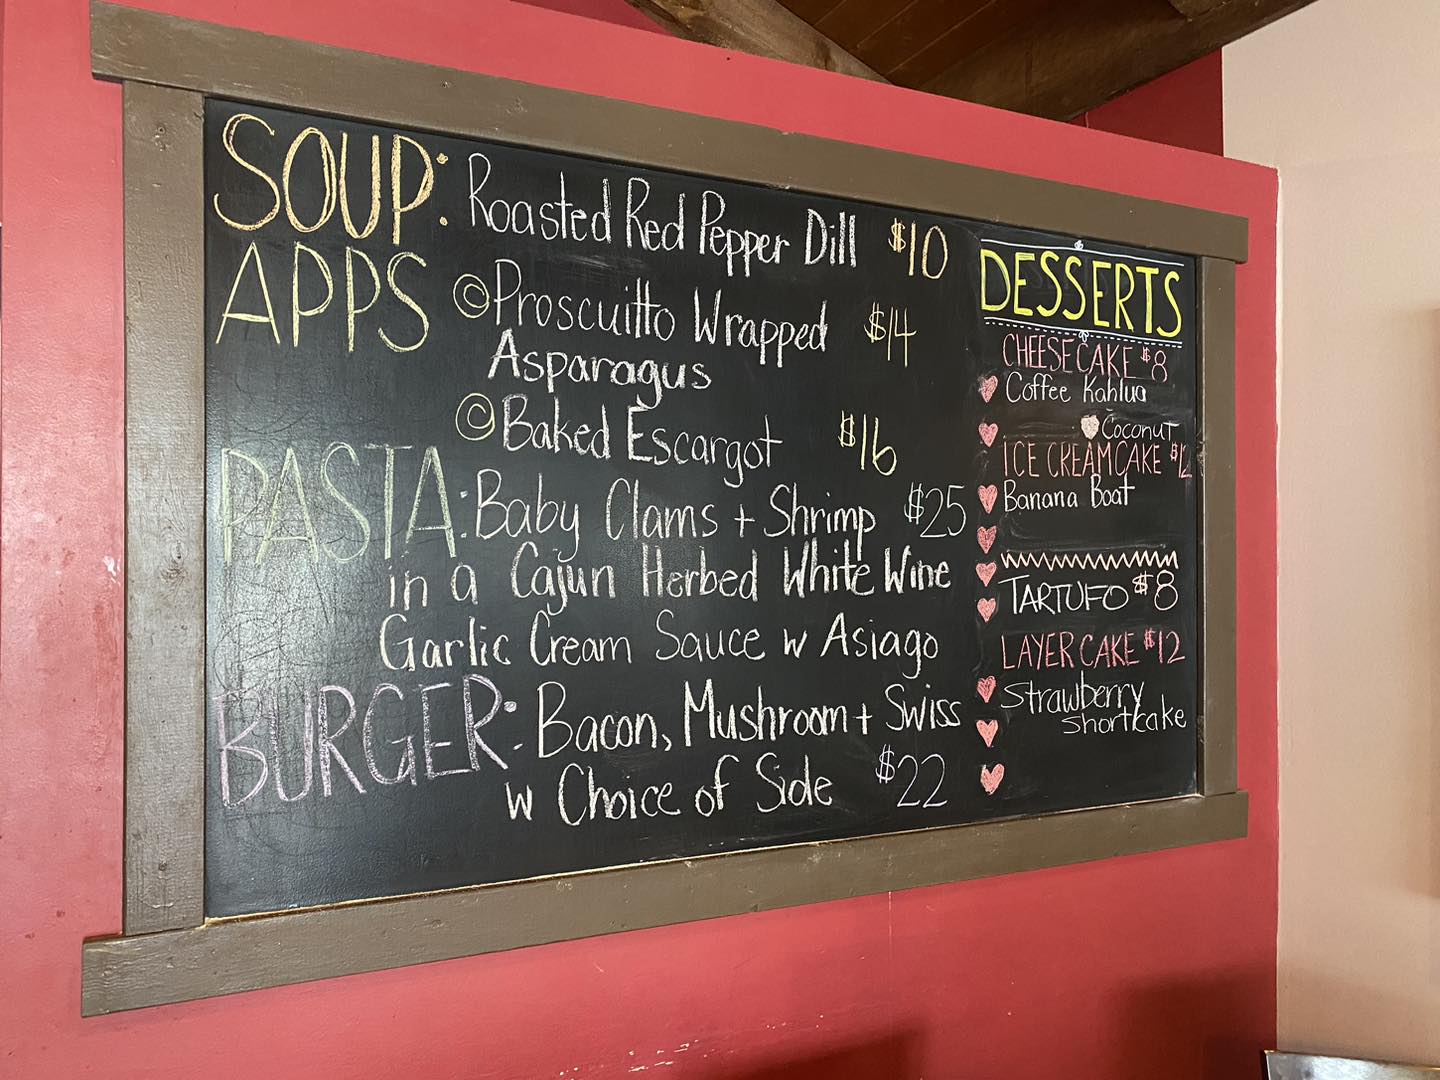 SOUP: Roasted Red Pepper Dill $10
APPS © Proscuitto Wrapped $14
Asparagus
© Baked Escargot $16
PASTA: Baby Clams + Shrimp $25
in a Cajun Herbed White Wine
Garlic Cream Sauce w Asiago
BURGER: Bacon, Mushroom + Swiss
w Choice of Side $22
DESSERTS
CHEESECAKE $8
Coffee Kahlua
Coconut
ICE CREAM CAKE
Banana Boat
TARTUFO $8
LAYER CAKE $12
Strawberry
Shortcake